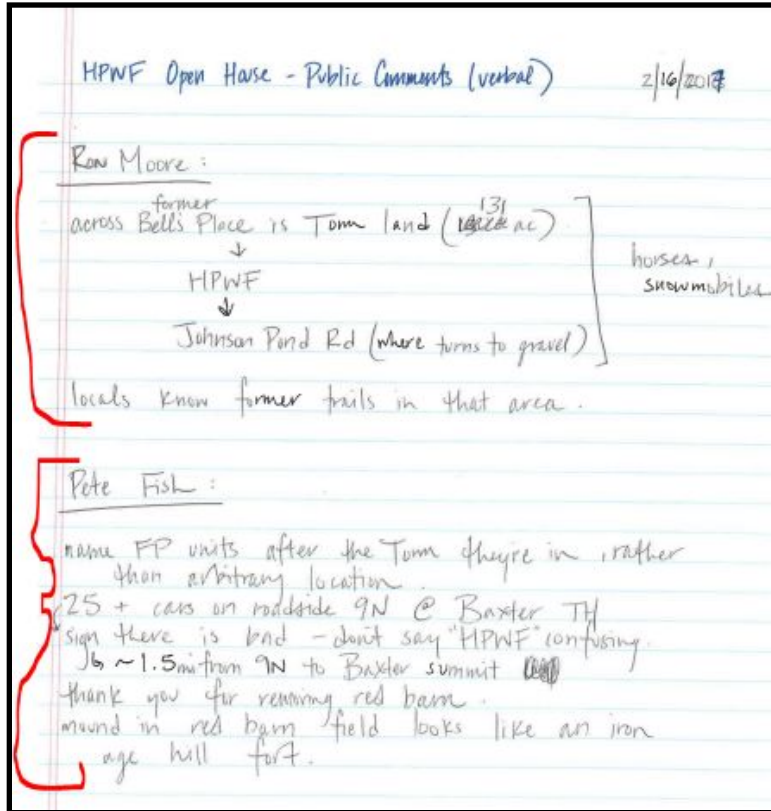 HPWF Open House - Public Comments (verbal) 2/16/2017
Ron Moore:
former 131
across Bell's Place is Town land ( ac)
↓
HPWF
horses,
snowmobiles
↓
Johnson Pond Rd (where turns to gravel)
locals know former trails in that area.
Pete Fish:
name FP units after the Town they're in, rather
than arbitrary location.
25 + cars on roadside 9N @ Baxter TH
sign there is bad - don't say "HPWF" confusing.
~1.5mi from 9N to Baxter summit
thank you for removing red barn.
mound in red barn field looks like an iron
age hill fort.